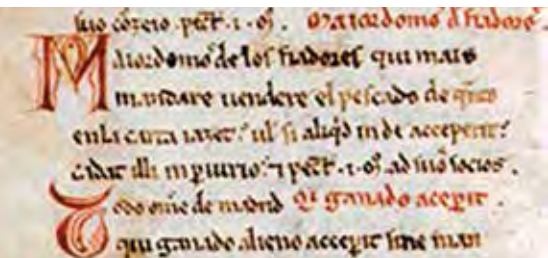 suo cōzeio. pect. ·i· oƷ. Maiordomo d fiadores.
Maiordomo de los fiadores qui mais
mandare uendere el pescado de q̄nto
en la carta iazet. ul si aliq̄d inde acceperit.
cadat illi in periurio. ⁊ pect. ·i· oƷ. ad suos socios.
Todo om̄e de madrid Qi ganado accepit.
qui ganado alieno accepit sine man